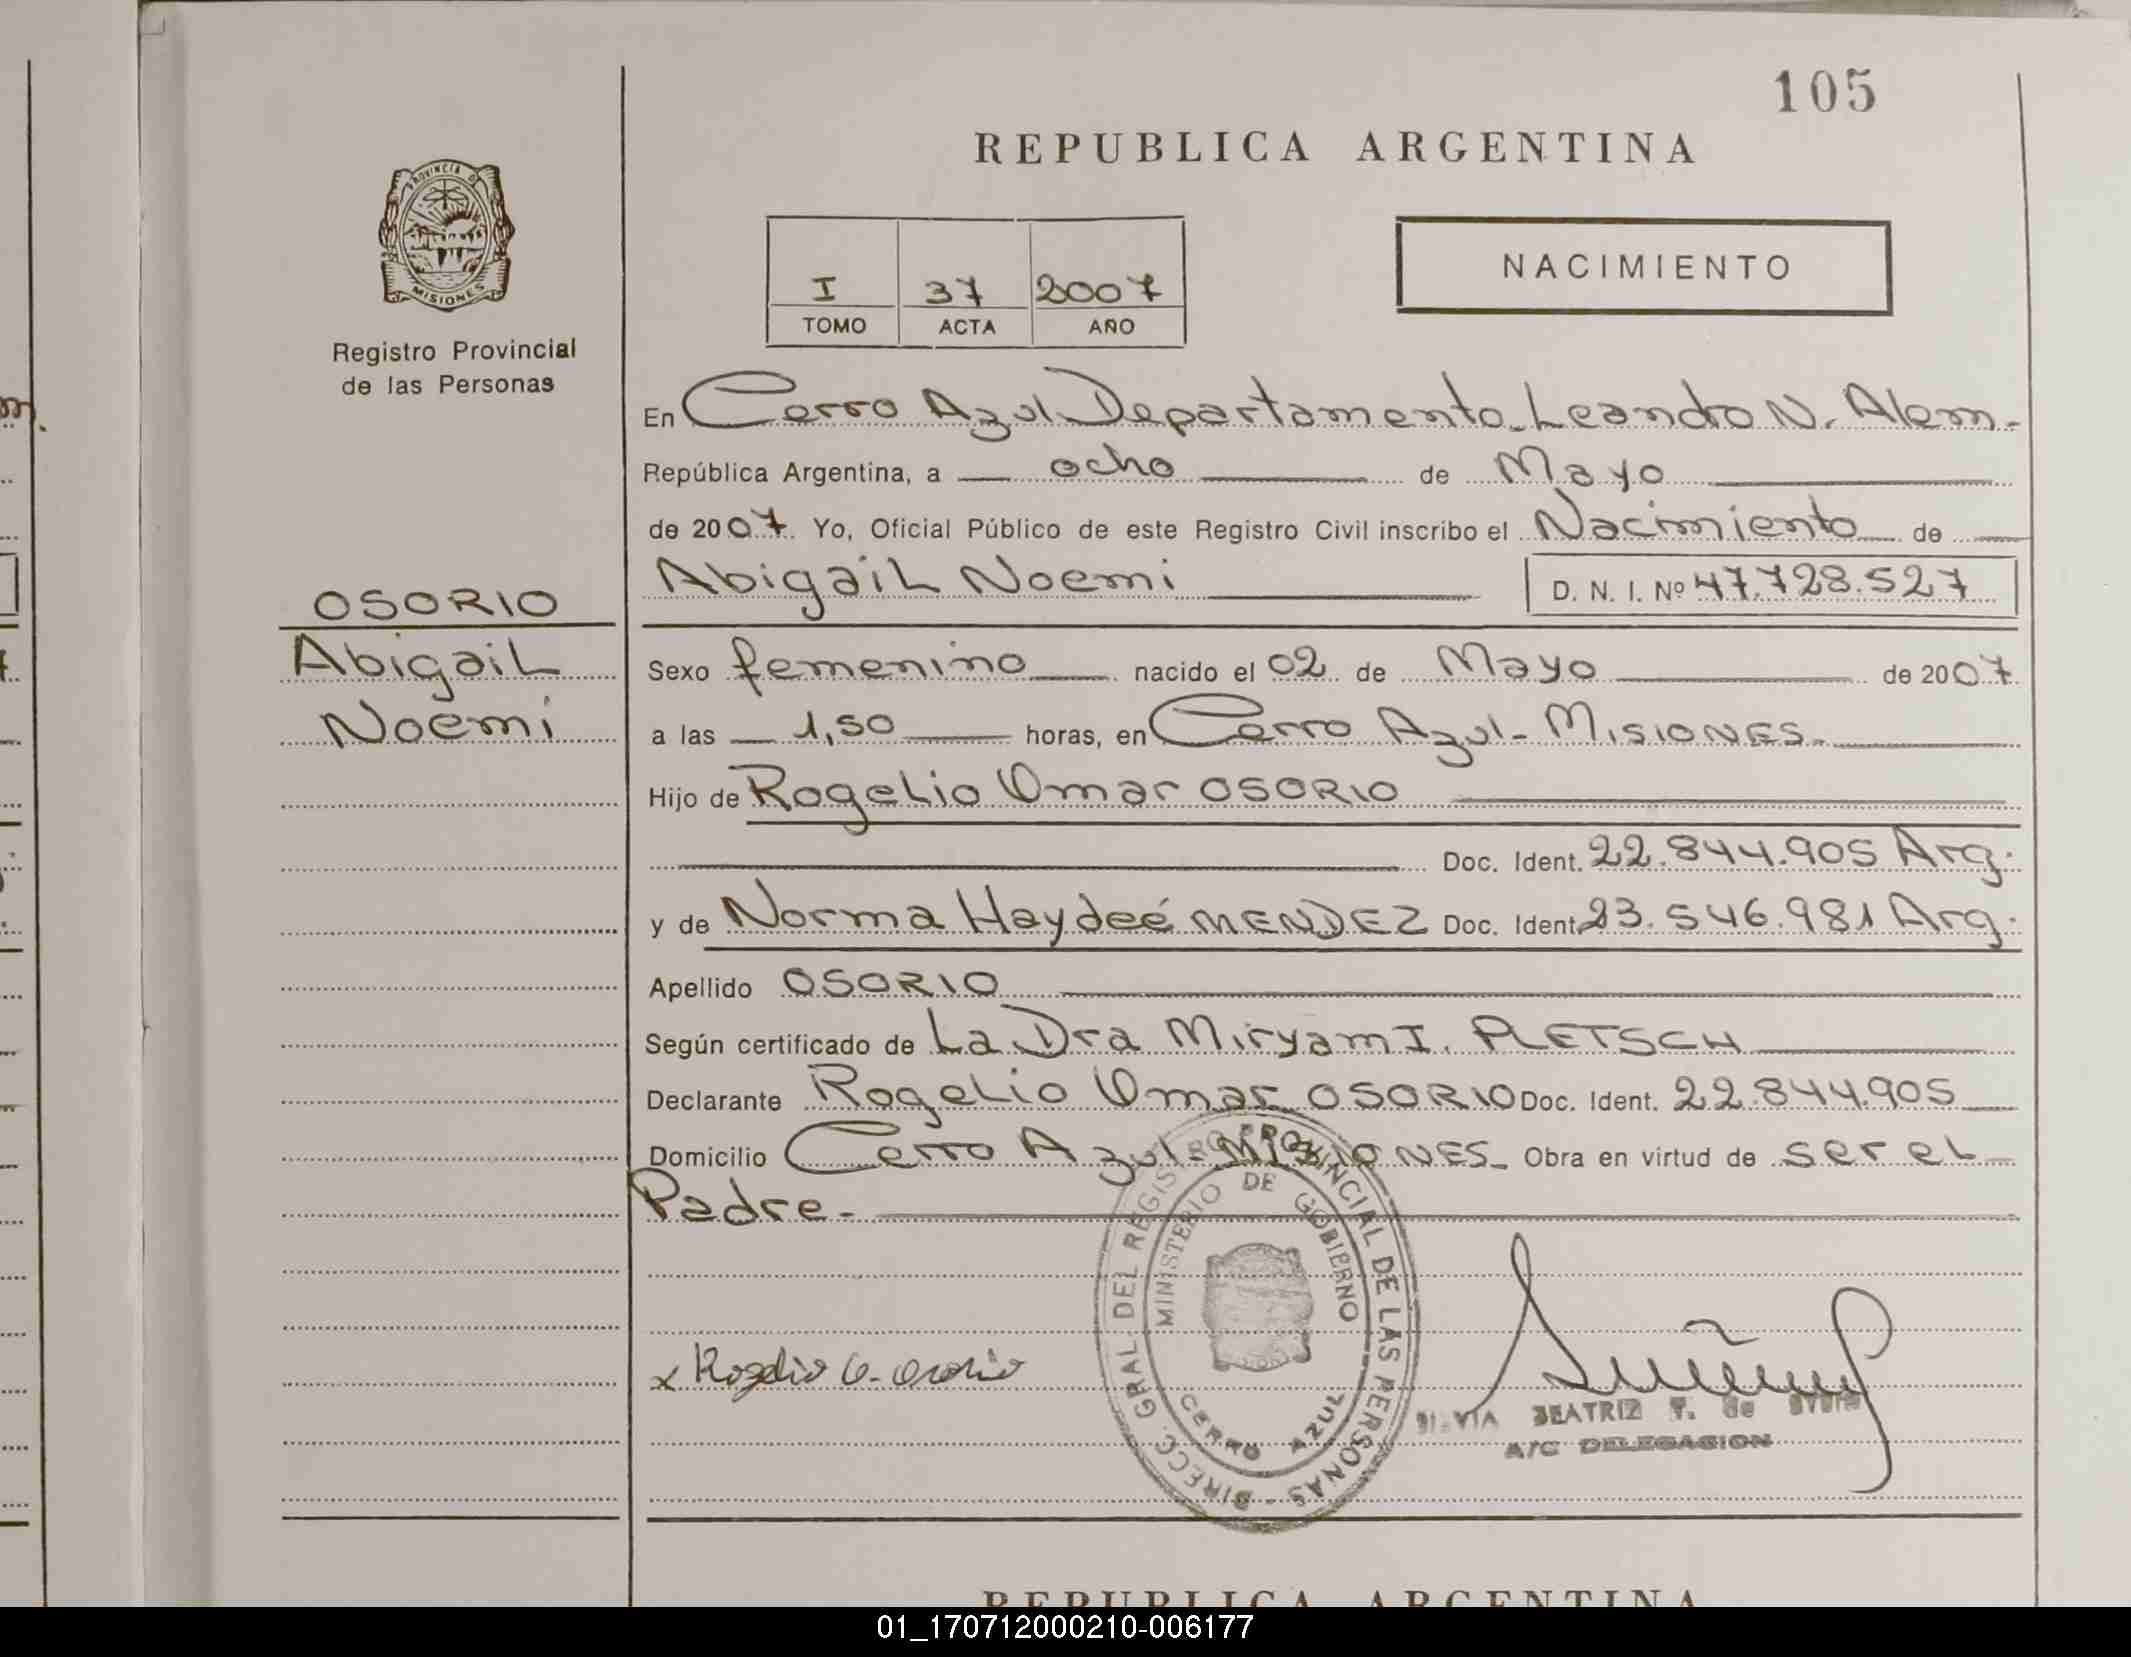 105
REPUBLICA ARGENTINA
PROVINCIA DE
MISIONES
Registro Provincial
de las Personas
I 37 2007
TOMO ACTA AÑO
NACIMIENTO
En Cerro Azul Departamento Leandro N. Alem-
República Argentina, a ocho de Mayo
de 2007 Yo, Oficial Público de este Registro Civil inscribo el Nacimiento de
Abigail Noemi D. N. I. Nº 47.728.527
OSORIO
Abigail
Noemi
Sexo femenino nacido el 02 de Mayo de 2007
a las 1,50 horas, en Cerro Azul - MISIONES.
Hijo de Rogelio Omar OSORIO
Doc. Ident. 22.844.905 Arg.
y de Norma Haydeé MENDEZ Doc. Ident. 23.546.981 Arg.
Apellido OSORIO
Según certificado de La Dra Miryam I. PLETSCH
Declarante Rogelio Omar OSORIO Doc. Ident. 22.844.905
Domicilio Cerro Azul - MISIONES- Obra en virtud de ser el
Padre-
DIRECC. GRAL DEL REGISTRO PROVINCIAL DE LAS PERSONAS -
MINISTERIO DE GOBIERNO
CERRO AZUL
x Rogelio O. Osorio
SILVIA BEATRIZ de
A/C DELEGACION
REPUBLICA ARGENTINA
01_170712000210-006177